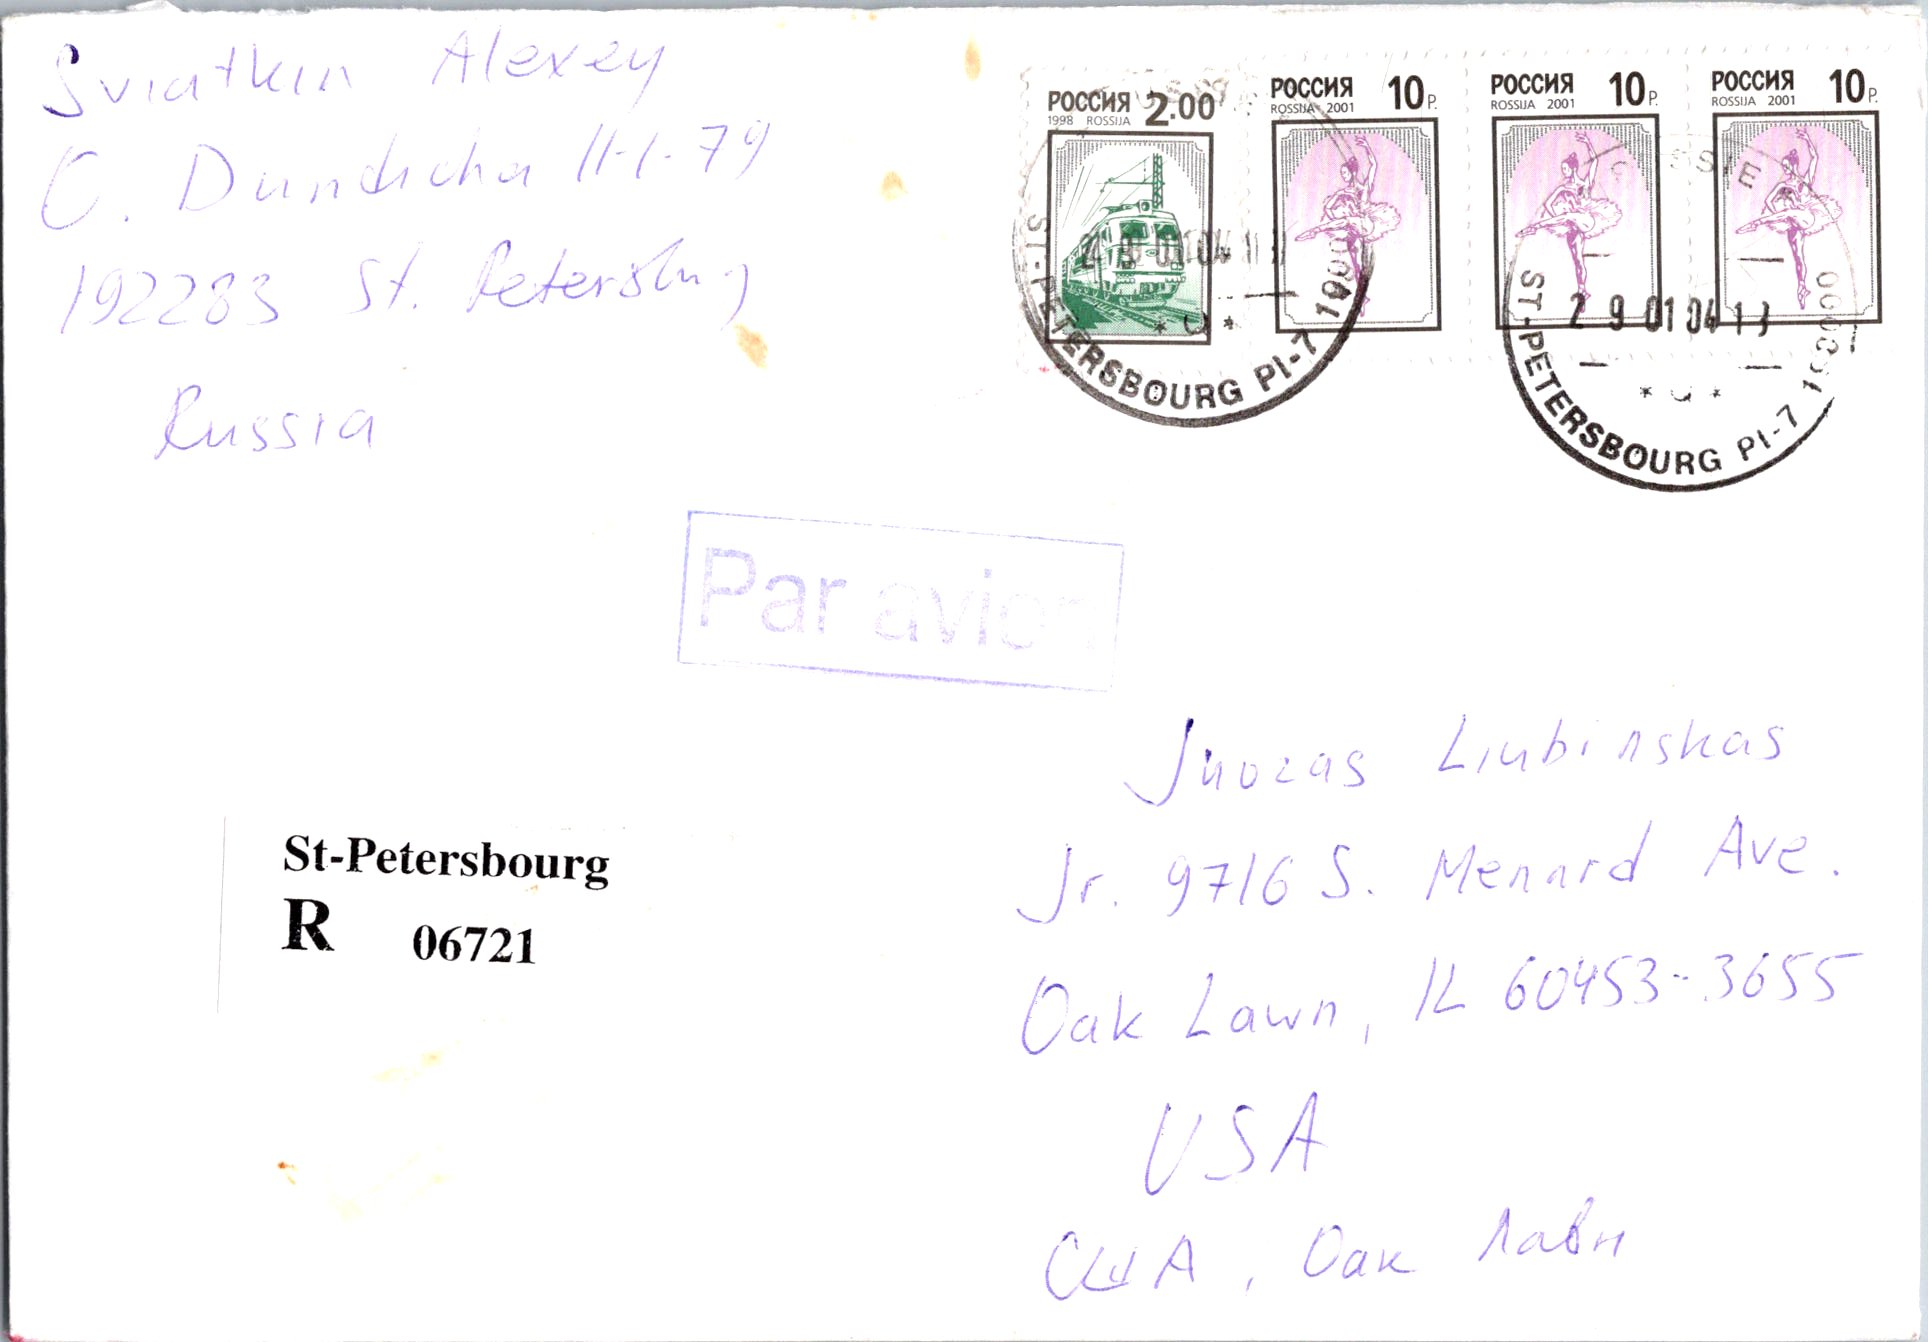 Sviatkin Alexey
O. Dundicha 11-1-79
192283 St. Petersburg
Russia
РОССИЯ 2.00
1998 ROSSIJA
РОССИЯ 10 Р.
ROSSIJA 2001
РОССИЯ 10 Р.
ROSSIJA 2001
РОССИЯ 10 Р.
ROSSIJA 2001
29 01 04 11
ST-PETERSBOURG PI-7 190000
29 01 04 13
ST-PETERSBOURG PI-7 190000
Par avion
St-Petersbourg
R 06721
Juozas Liubinskas
Jr. 9716 S. Menard Ave.
Oak Lawn, IL 60453-3655
USA
США, Оак Лавн